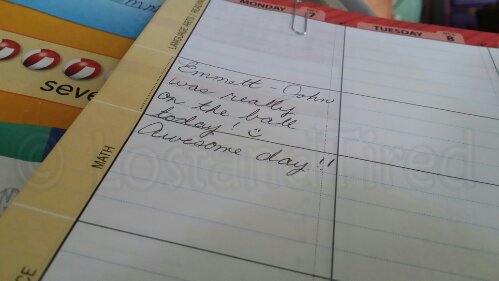 MONDAY 7
TUESDAY 8
LANGUAGE ARTS / READING
Emmett-John
was really
on the ball
today! ☺
Awesome day!!
MATH
seve
© LostandTired